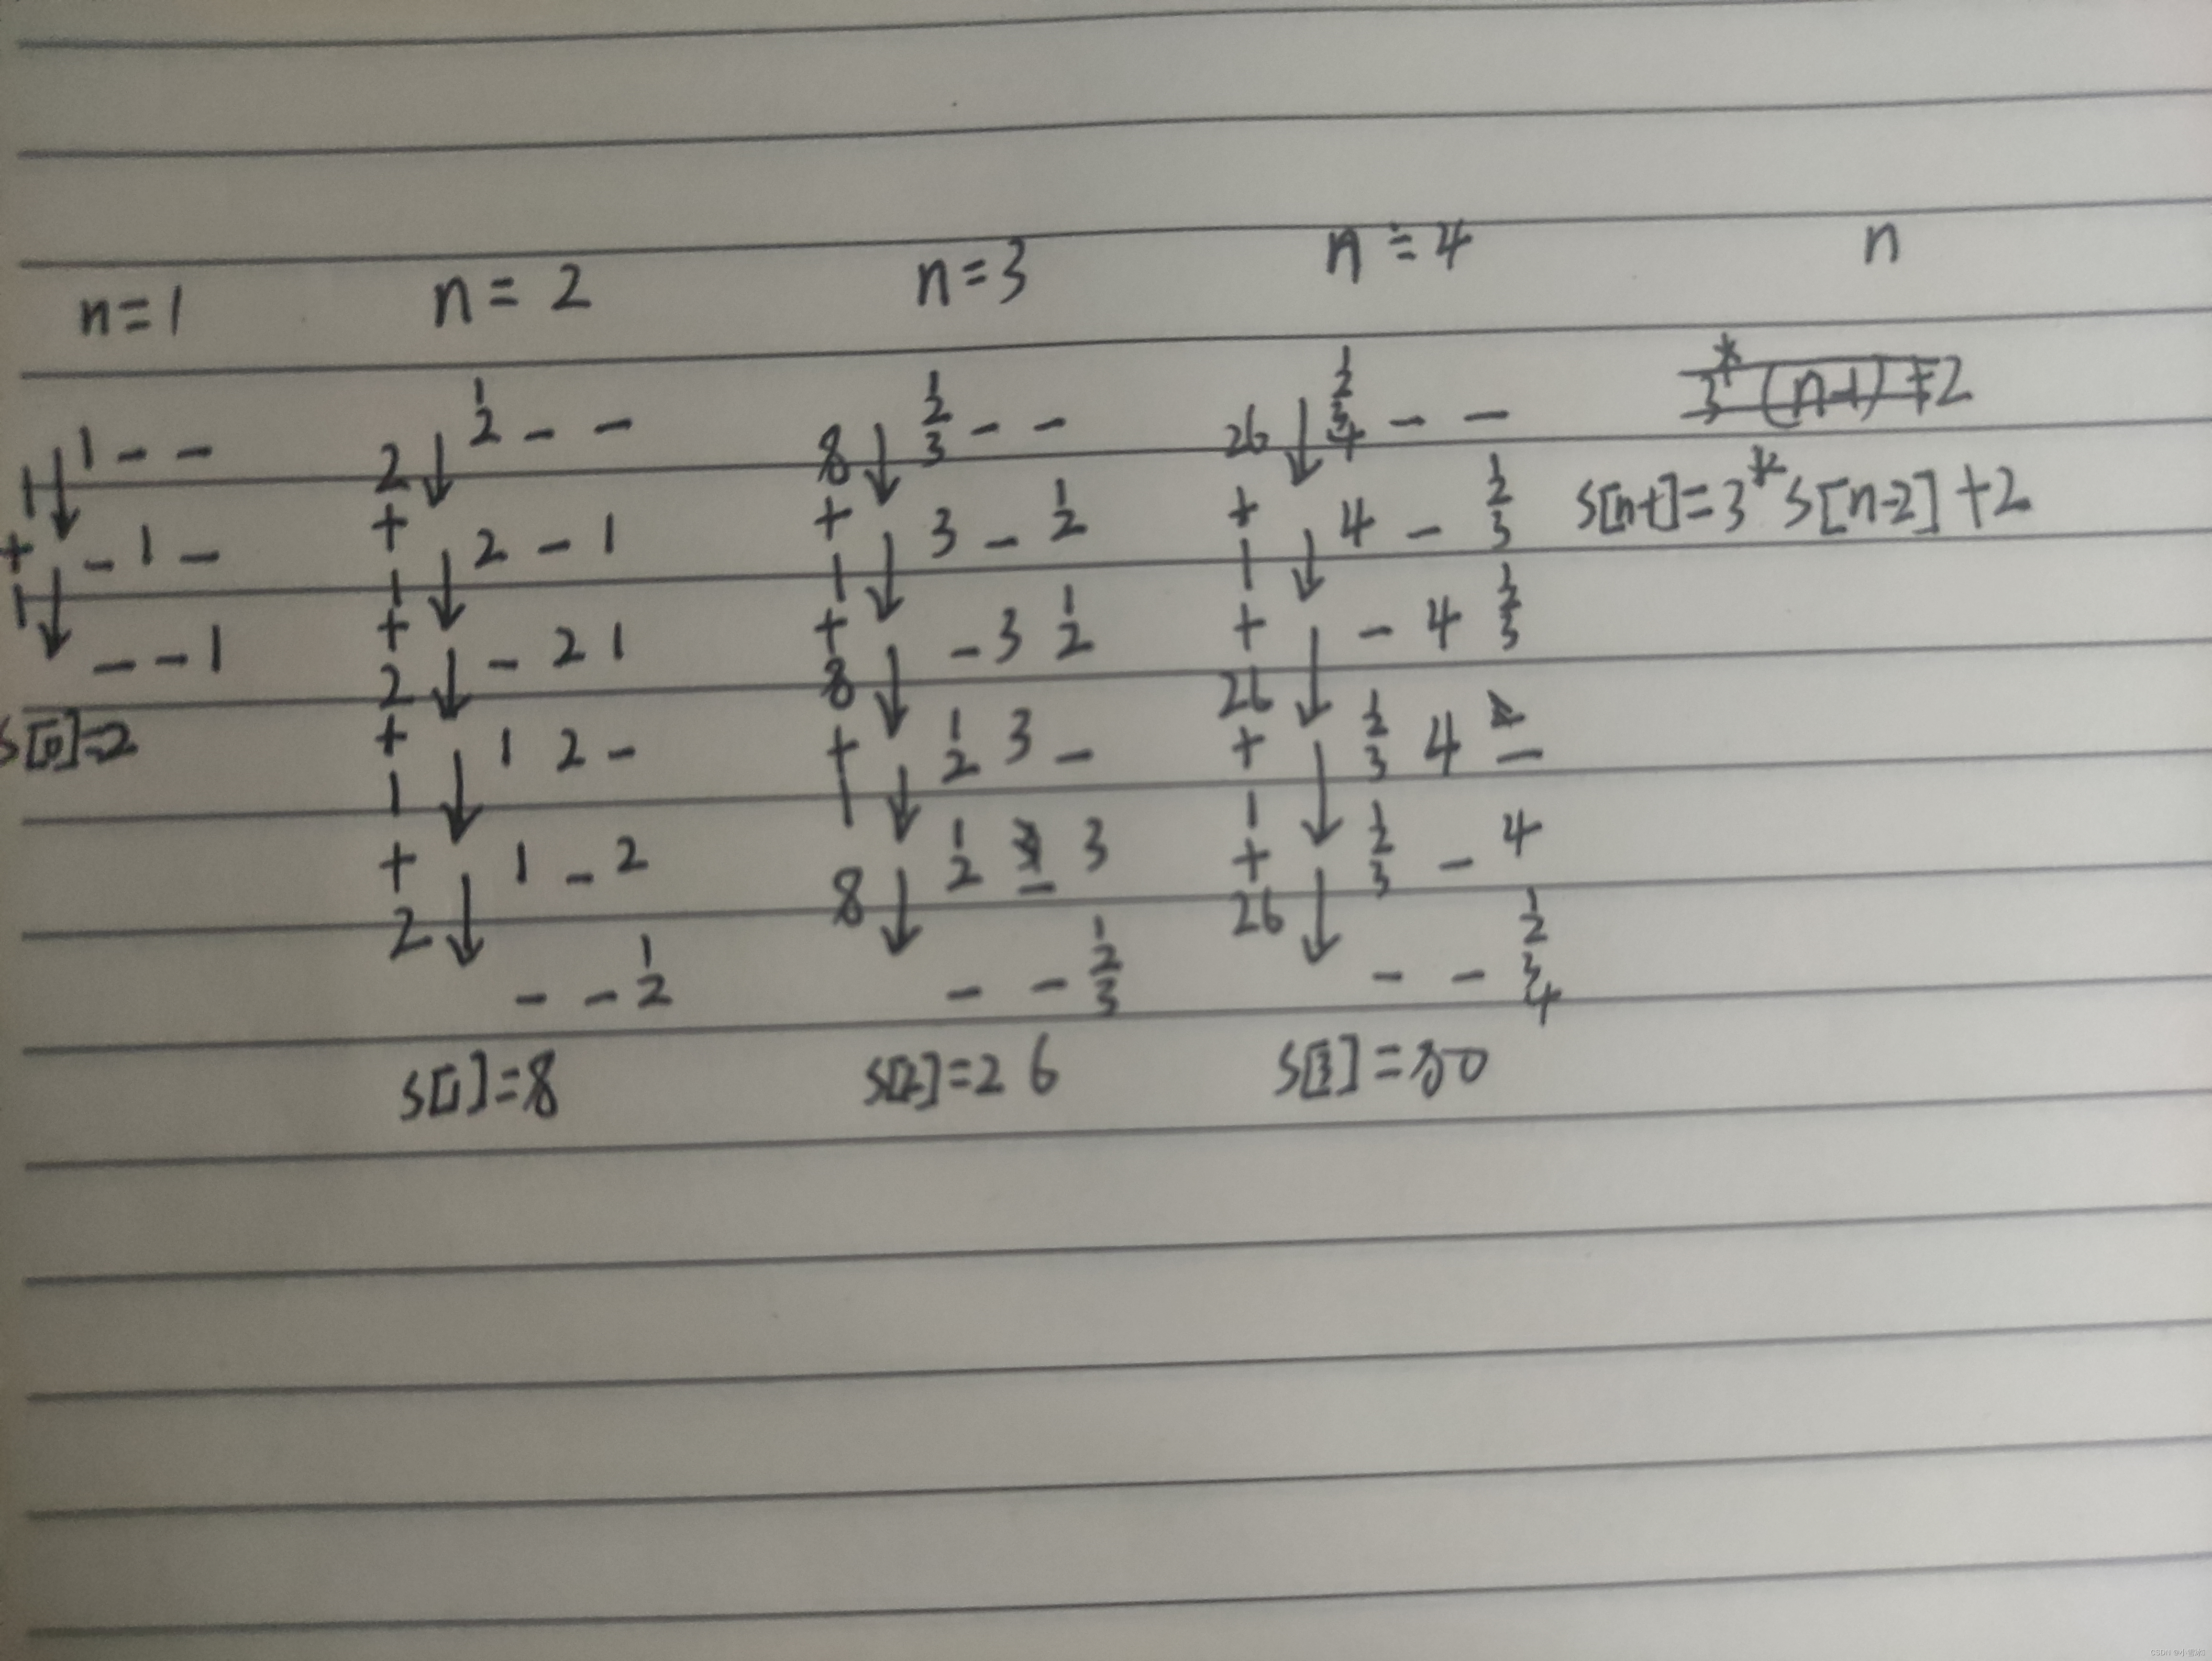 n=1 n=2 n=3 n=4 n
1 - - 1 2 - - 1 2 3 - - 1 2 3 4 - - 3*(n-1)+2
1 2 8 26
+ - 1 - + 2 - 1 + 3 - 1 2 + 4 - 1 2 3 S[n-1]=3*S[n-2]+2
1 1 1 1
- - 1 + - 2 1 + - 3 1 2 + - 4 1 2 3
2 8 26
S[0]=2 + 1 2 - + 1 2 3 - + 1 2 3 4 -
1 1 1
+ 1 - 2 1 2 - 3 + 1 2 3 - 4
2 8 26
- - 1 2 - - 1 2 3 - - 1 2 3 4
S[1]=8 S[2]=26 S[3]=80